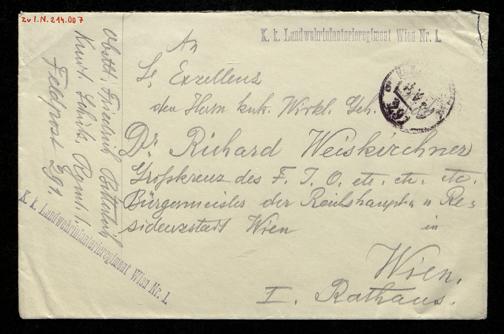 Zu I.N. 214.007
K. k. Landwehrinfanterieregiment Wien Nr. 1.
An
Se Exzellenz
den Herrn kuk. Wirkl. Geh.
Dr Richard Weiskirchner
Grosskreuz des F. J. O. etc. etc. etc.
Bürgermeister der Reichshaupt- u Re-
sidenzstadt Wien
in
Wien,
I. Rathaus.
Obstlt. Friedrich
Feldpost
K. k. Landwehrinfanterieregiment Wien Nr. 1.